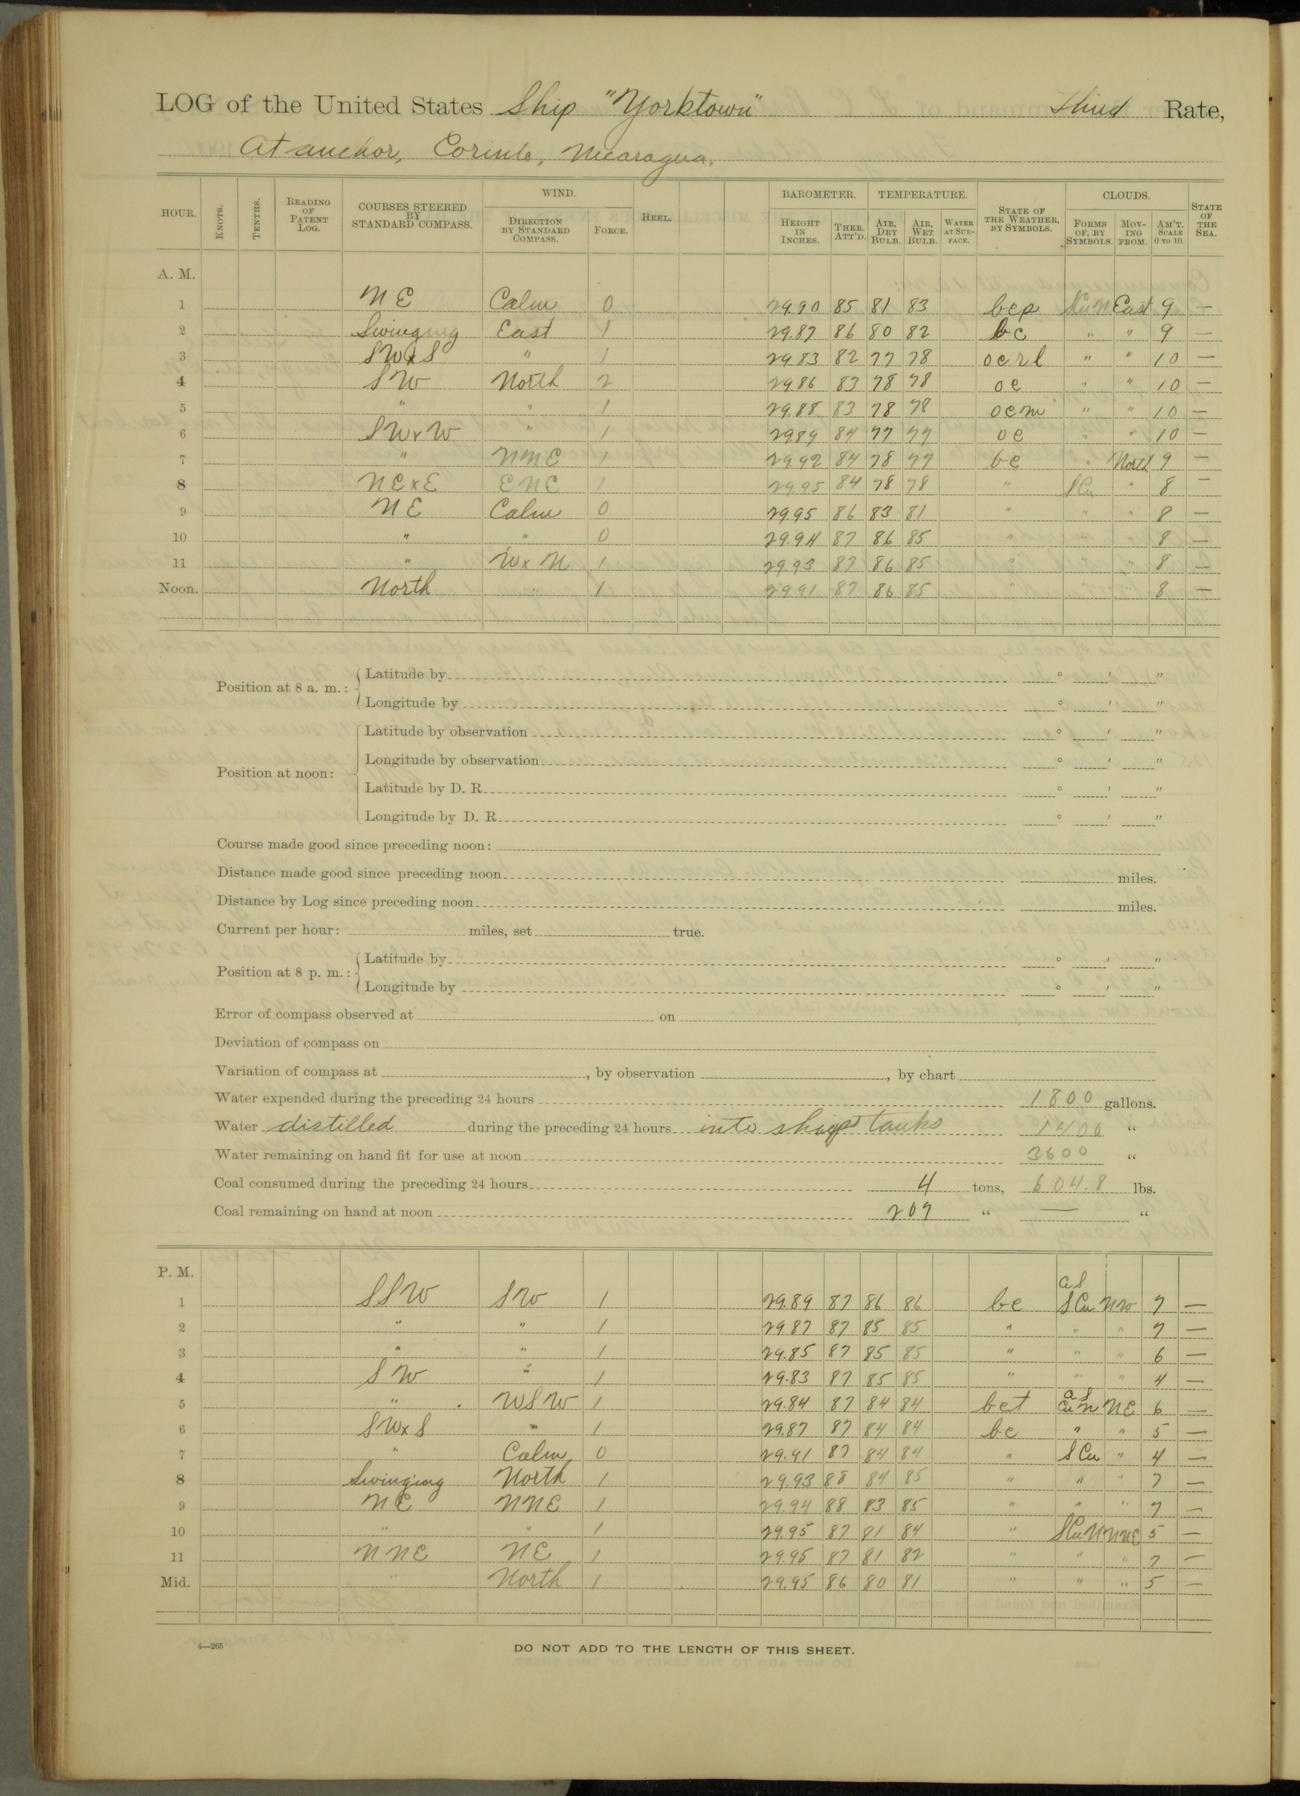 LOG of the United States Ship "Yorktown" Third Rate,
At anchor, Corinto, Nicaragua.
HOUR. KNOTS. TENTHS. READING OF PATENT LOG. COURSES STEERED BY STANDARD COMPASS. WIND. DIRECTION BY STANDARD COMPASS. FORCE. HEEL. BAROMETER. HEIGHT IN INCHES. THER. ATT'D. TEMPERATURE. AIR, DRY BULB. AIR, WET BULB. WATER AT SURFACE. STATE OF THE WEATHER, BY SYMBOLS. CLOUDS. FORMS OF, BY SYMBOLS. MOVING FROM. AM'T. SCALE 0 TO 10. STATE OF THE SEA.
A. M.
1 NE Calm 0 29.90 85 81 83 bcp SCuN East 9 —
2 Swinging East 1 29.87 86 80 82 bc " " 9 —
3 SWxS " 1 29.83 82 77 78 ocrl " " 10 —
4 SW North 2 29.86 83 78 78 oc " " 10 —
5 " " 1 29.88 83 78 78 ocm " " 10 —
6 SWxW " 1 29.89 84 77 77 oc " " 10 —
7 " NNE 1 29.92 84 78 77 bc " North 9 —
8 NExE ENE 1 29.95 84 78 78 " SCu " 8 —
9 NE Calm 0 29.95 86 83 81 " " " 8 —
10 " " 0 29.94 87 86 85 " " " 8 —
11 " WxN 1 29.93 87 86 85 " " " 8 —
Noon. North " 1 29.91 87 86 85 8 —
Position at 8 a. m.: Latitude by ° ' "
Longitude by ° ' "
Position at noon: Latitude by observation ° ' "
Longitude by observation ° ' "
Latitude by D. R. ° ' "
Longitude by D. R. ° ' "
Course made good since preceding noon:
Distance made good since preceding noon miles.
Distance by Log since preceding noon miles.
Current per hour: miles, set true.
Position at 8 p. m.: Latitude by ° ' "
Longitude by ° ' "
Error of compass observed at on
Deviation of compass on
Variation of compass at , by observation , by chart
Water expended during the preceding 24 hours 1800 gallons.
Water distilled during the preceding 24 hours into ships tanks 1400 "
Water remaining on hand fit for use at noon 3600 "
Coal consumed during the preceding 24 hours 4 tons, 604.8 lbs.
Coal remaining on hand at noon 209 " — "
P. M.
1 SSW SW 1 29.89 87 86 86 bc aS SCu NW 7 —
2 " " 1 29.87 87 85 85 " " " 7 —
3 " " 1 29.85 87 85 85 " " " 6 —
4 SW " 1 29.83 87 85 85 " " " 4 —
5 " WSW 1 29.84 87 84 84 bct aS CuN NE 6 —
6 SWxS " 1 29.87 87 84 84 bc " " 5 —
7 " Calm 0 29.91 87 84 84 " SCu " 4 —
8 Swinging North 1 29.93 88 84 85 " " " 7 —
9 NE NNE 1 29.94 88 83 85 " " " 7 —
10 " " 1 29.95 87 81 84 " SCuN NNE 5 —
11 NNE NE 1 29.95 87 81 82 " " " 7 —
Mid. " North 1 29.95 86 80 81 " " " 5 —
4—265
DO NOT ADD TO THE LENGTH OF THIS SHEET.